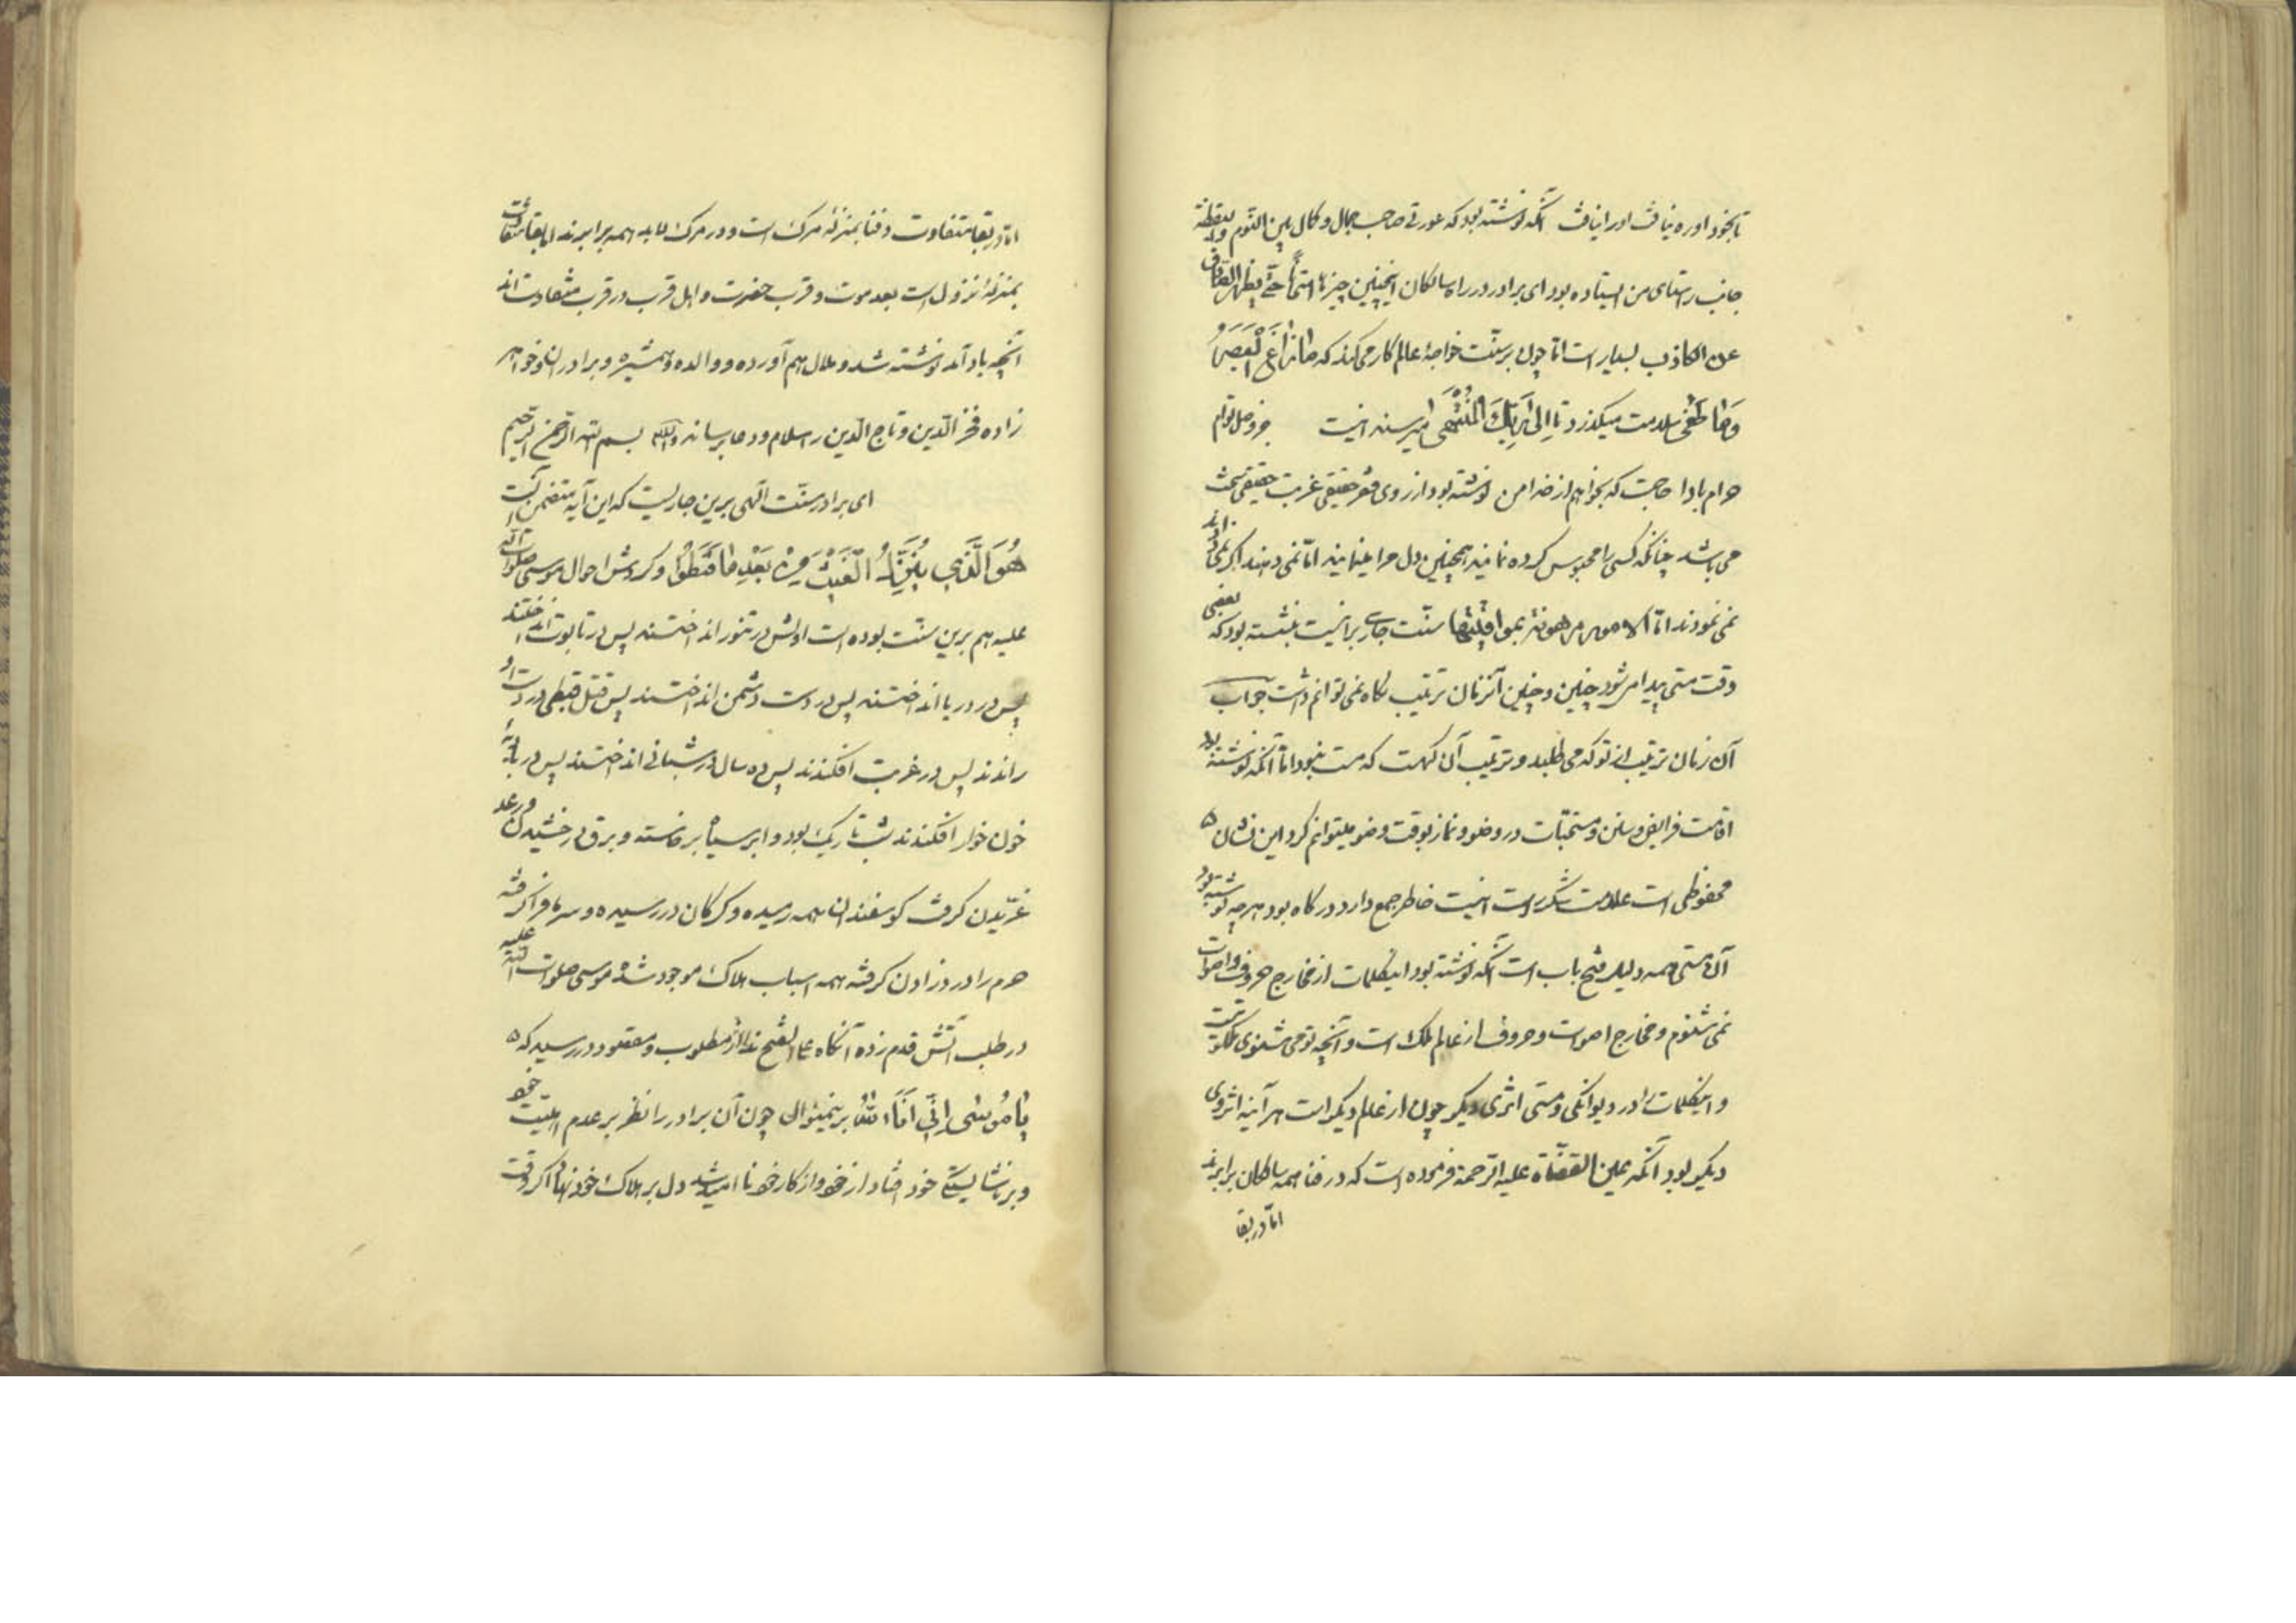 تا بخود او ره نیافت او را نیافت آنکه نوشته بود که عورتی صاحب جمال و کمال بین النوم و الیقظة
جانب راستای من ایستاده بود ای برادر در راه سالکان اینچنین چیزها امتحانست حتی یظهر الصادق
عن الکاذب بسیار است اما چون بر سنّت خواجهٔ عالم کار می‌کند که مَا زَاغَ الْبَصَرُ
وَمَا طَغٰی بسلامت میگذرد تا اِلٰی رَبِّکَ الْمُنْتَهٰی میرسد اینست جز وصل توام
حرام بادا حاجت که بخواهم از خدا من نوشته بود از روی فقر حقیقی غربت حقیقی سخت
می‌باشد چنانکه کسی را محبوس کرده نمایند همچنین دل مرا مینمایند اما نمی دهند اگر نمی دادند
نمی نمودند اما الامور مرهونة بمواقیتها سنّت جاری بر اینست نبشته بود که بعضی
وقت مستی پیدا میشود چنین و چنین آنزمان ترتیب نگاه نمی توانم داشت جواب
آن زمان ترتیب از تو که می طلبد و ترتیب آن کهست که مست نبود اما آنکه نوشته بود
اقامت فرایض و سنن و مستحبّات در وضو و نماز بوقت وضو میتوانم کرد این نشان
محفوظی است علامت شکر است اینست خاطر جمع دارد در کاه بود هرچه نوشته بود
آن مستی همه دلیل فتح باب است آنکه نوشته بود اینکلمات از مخارج حروف و اصوات
نمی شنوم و مخارج اصوات و حروف از عالم ملک است و آنچه تو می شنوی ملکوتیست
و اینکلمات را در دیوانگی و مستی اثری دیگر چون از عالم دیگر است هر آینه اثر وی
دیگر بود آنکه عین القضاة علیه الرحمة فرموده است که در فنا همه سالکان برابرند
اما در بقا
اما در بقا متفاوت و فنا بمنزلهٔ مرک است و در مرک لابد همه برابرند اما بقا متفاوت
بمنزلهٔ نزول است بعد موت و قرب حضرت و اهل قرب در قرب متفاوت‌اند
آنچه یاد آمد نوشته شد و ملال هم آورده و والده و همشیره و برادران و خواهر
زاده فخر الدین و تاج الدین را سلام و دعا برساند والله بسم الله الرحمن الرحیم
ای برادر سنّت الٰهی برین جاریست که این آیه متضمن آنست
هُوَ الَّذِی یُنَزِّلُ الْغَیْثَ مِنْ بَعْدِ مَا قَنَطُوْا و کردش احوال موسی صلوات الله
علیه هم برین سنّت بوده است اولش در تنور انداختند پس در تابوت انداختند
پس در دریا انداختند پس در دست دشمن انداختند پس قتل قبطی در دست او
راندند پس در غربت افکندند پس ده سال در شبانی انداختند پس در بادیهٔ
خون خوار افکندند شب تاریک بود و ابر سیاه برخاسته و برق درخشیدن و رعد
غرّیدن کرفت کوسفندان همه رمیده و کرکان در رسیده و سرما فرا کرفته
حرم را درد زادن کرفته همه اسباب هلاک موجود شده موسی صلوات الله علیه
در طلب آتش قدم زده آنکاه علی الفتح ندا از مطلوب و مقصود در رسید که
یَا مُوسٰی اِنِّی اَنَا اللّٰهُ برینمنوال چون آن برادر را نظر بر عدم اهلیّت خود
و بر ناشایستکی خود افتاد از خود و از کار خود ناامید شد دل بر هلاک خود نهاد اکر وقت